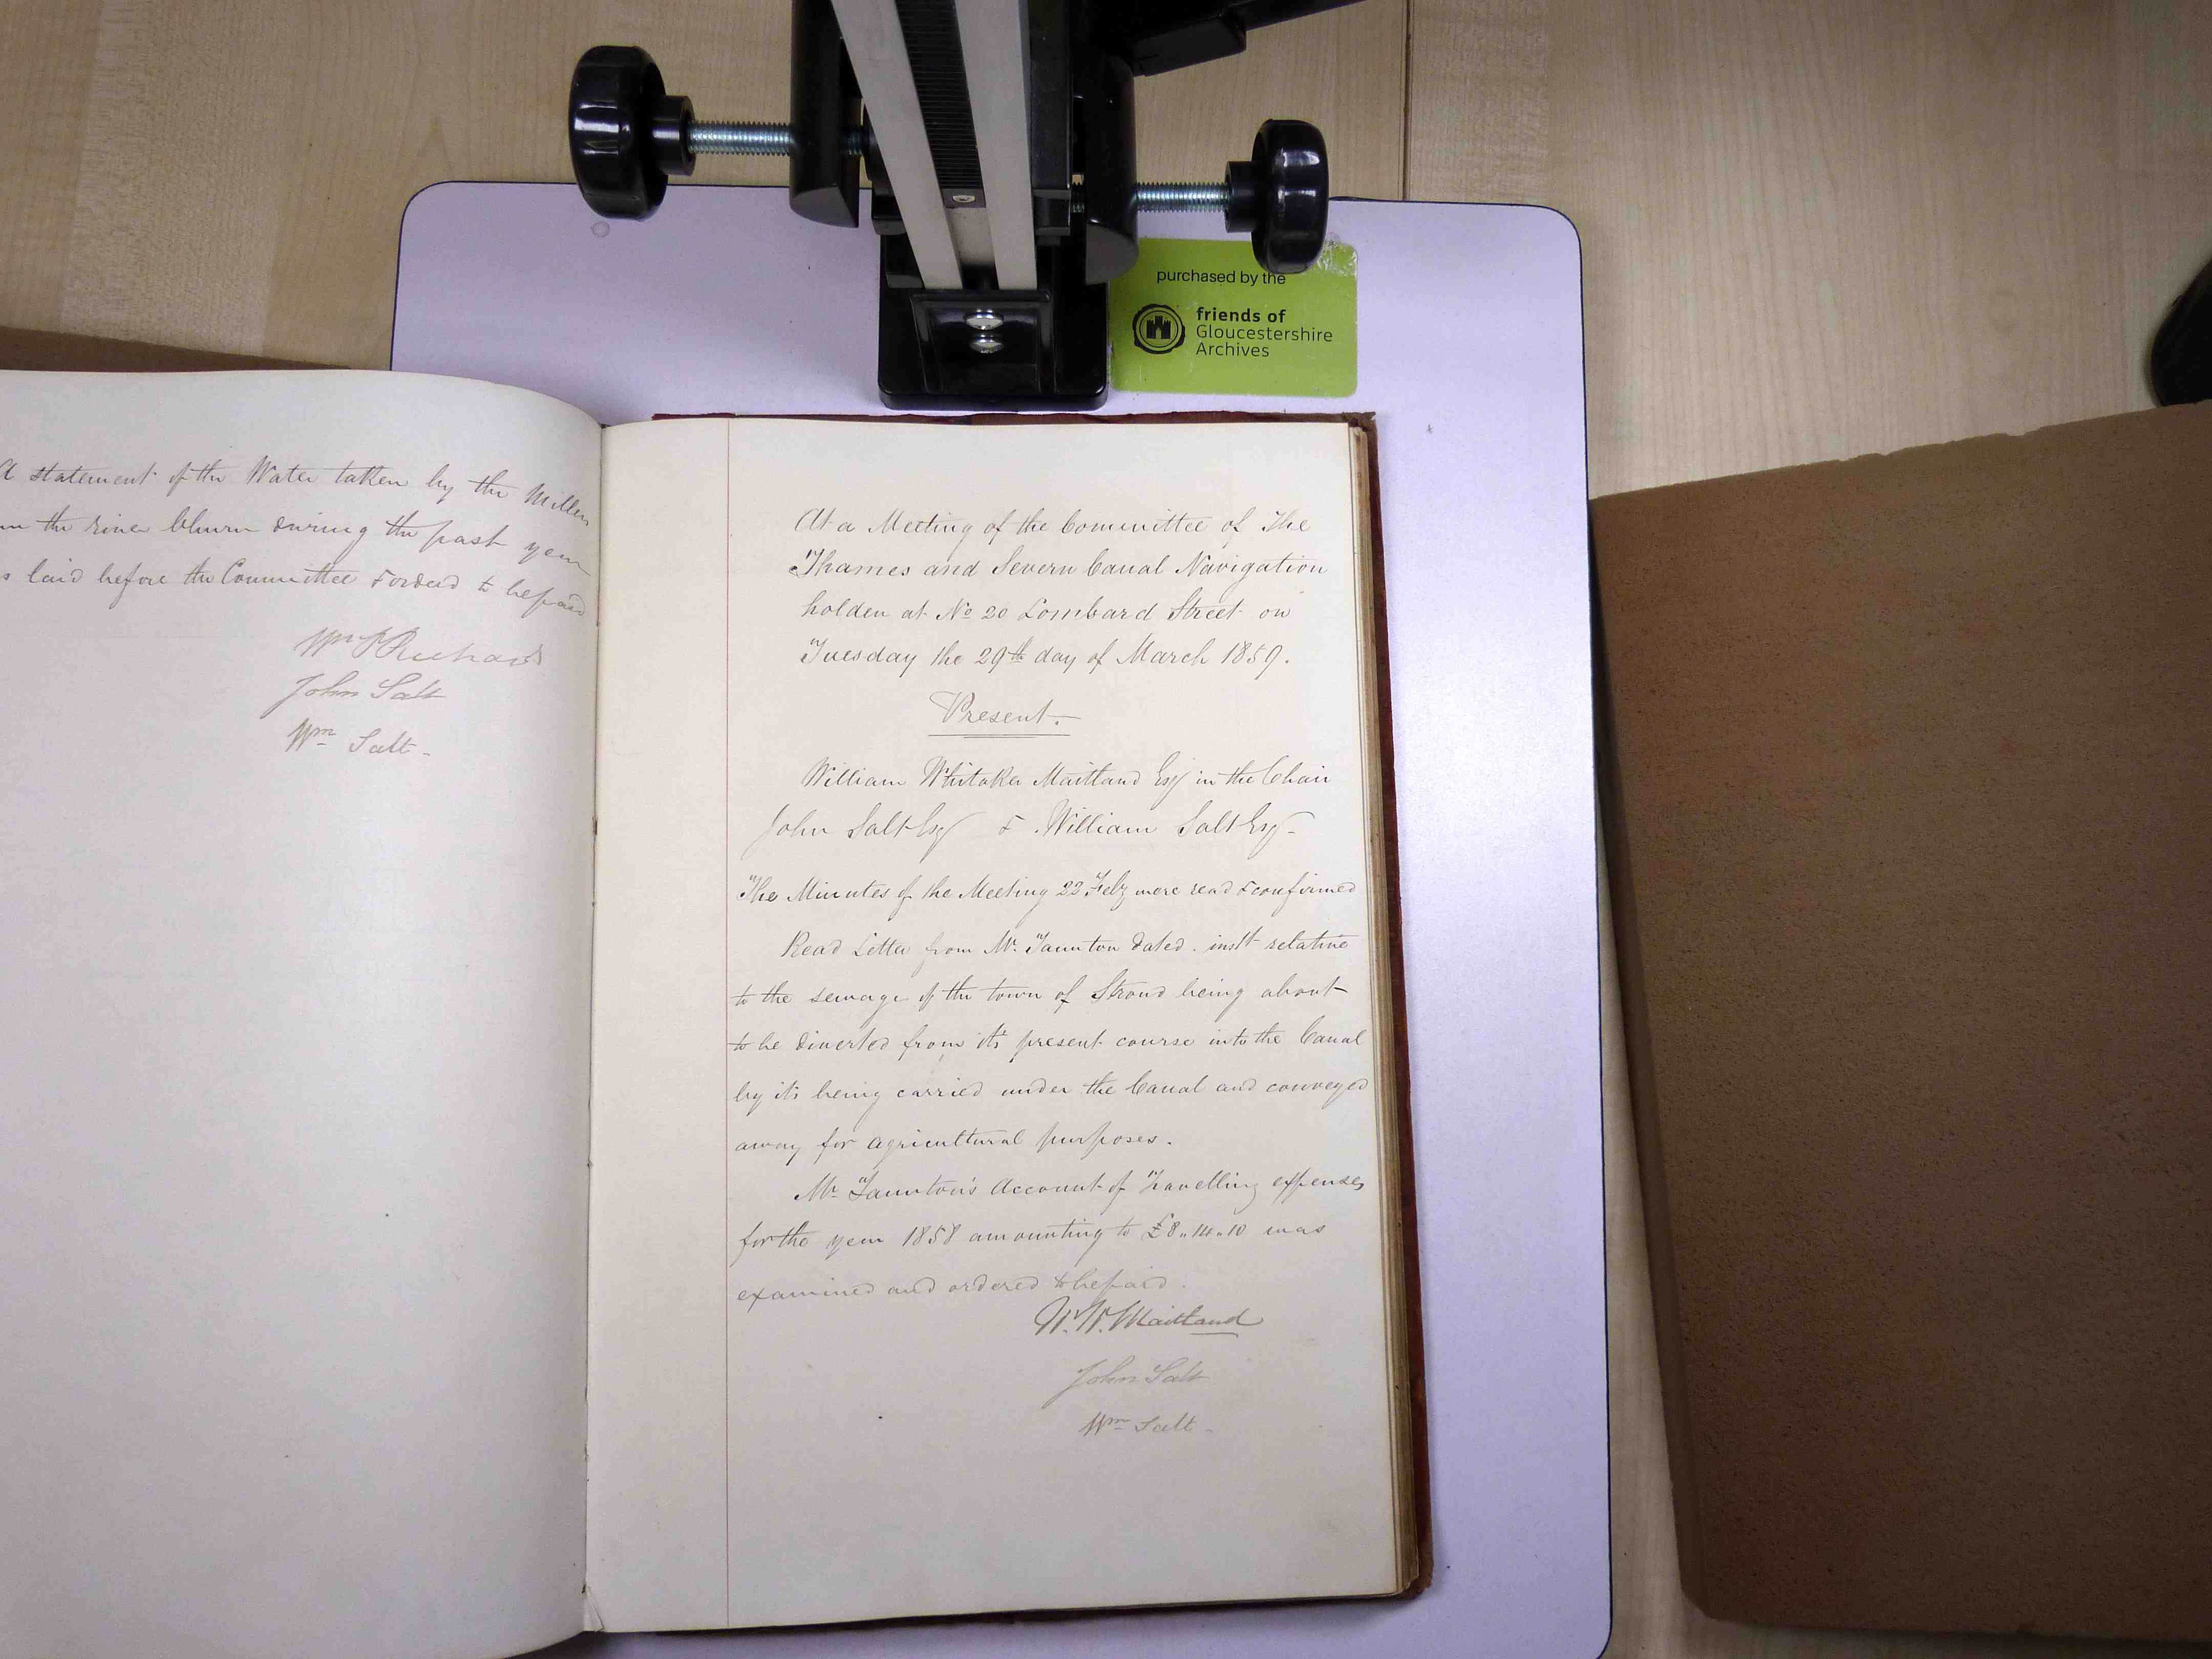 purchased by the
friends of
Gloucestershire
Archives
A statement of the Water taken by the Millers
the river Churn during the past year
laid before the Committee & orderd to be paid
Wm P Richards
John Salt
Wm Salt -
At a Meeting of the Committee of The
Thames and Severn Canal Navigation
holden at No 20 Lombard Street on
Tuesday the 29th day of March 1859.
Present.
William Whitaker Maitland Esq in the Chair
John Salt Esq & William Salt Esq -
The Minutes of the Meeting 22 Feby were read & confirmed
Read Letter from Mr. Taunton dated . inst relative
to the sewage of the town of Stroud being about
to be diverted from its present course into the Canal
by its being carried under the Canal and conveyed
away for agricultural purposes.
Mr Taunton's Account of Travelling expenses
for the year 1858 amounting to £8..14..10 was
examined and ordered to be paid.
W. W. Maitland
John Salt
Wm Salt -